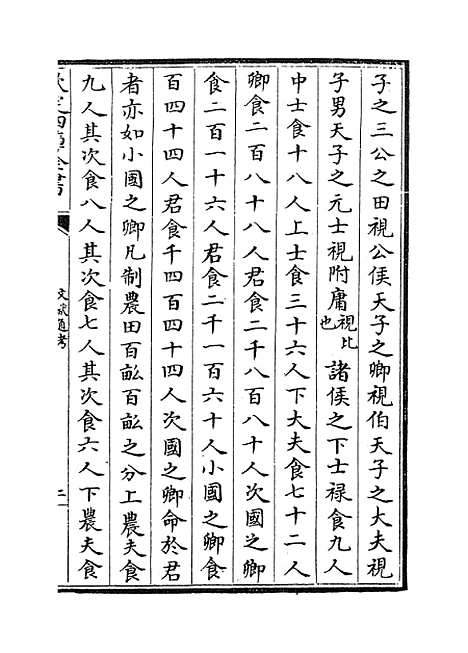 子之三公之田視公侯天子之卿視伯天子之大夫視
子男天子之元士視附庸視比也諸侯之下士禄食九人
中士食十八人上士食三十六人下大夫食七十二人
卿食二百八十八人君食二千八百八十人次國之卿
食二百一十六人君食二千一百六十人小國之卿食
百四十四人君食千四百四十四人次國之卿命於君
者亦如小國之卿凡制農田百畝百畝之分上農夫食
九人其次食八人其次食七人其次食六人下農夫食
欽定四庫全書
文獻通考